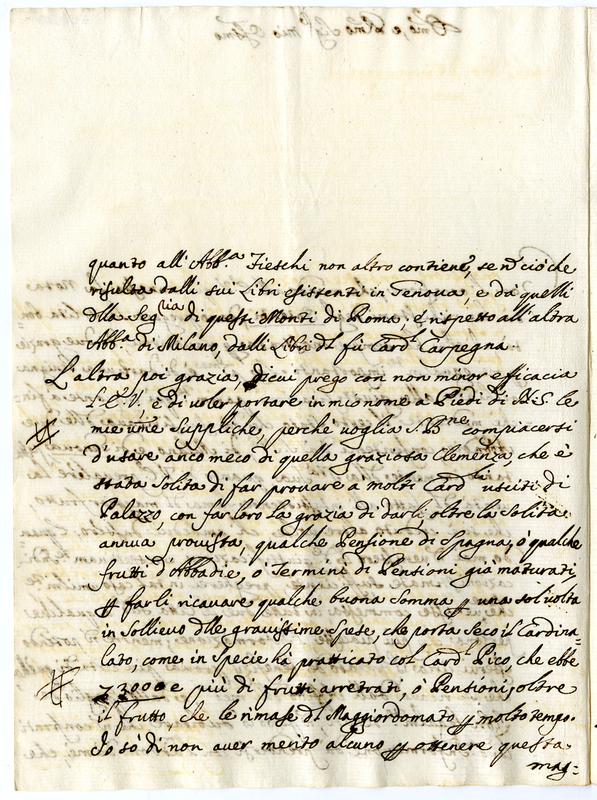 quanto all' Abb.ª Fieschi non altro contiene, se nō ciò che
risulta dalli sui Libri esistenti in Genova, e da quelli
dlla Seg.ria di questi Monti di Roma, e rispetto all' altra
Abb.ª di Milano, dalli Libri dl fù Card.l Carpegna.
L'altra poi grazia, di cui prego con non minor efficacia
è di voler portare in mio nome a Piedi di N.S. le
mie ume Suppliche, perchè voglia S. B.ne compiacersi
d'usare anco meco di quella graziosa Clemenza, che è
stata Solita di far provare a molti Card.li usciti di
Palazzo, con far loro la grazia di darli, oltre la Solita
annua provista, qualche Pensione di Spagna, ò qualche
frutti d'Abbadie, ò Termini di Pensioni già maturati,
p farli ricavare qualche buona Somma p una sol volta
in Sollievo dlle gravissime Spese, che porta Seco il Cardina=
lato, come in Specie hà pratticato col Card.l Pico, che ebbe
23000 e più di frutti arretrati, ò Pensioni, oltre
il frutto, che le rimase dl Maggiordomato p molto tempo.
Io sò di non aver merito alcuno p ottenere questa
mag=